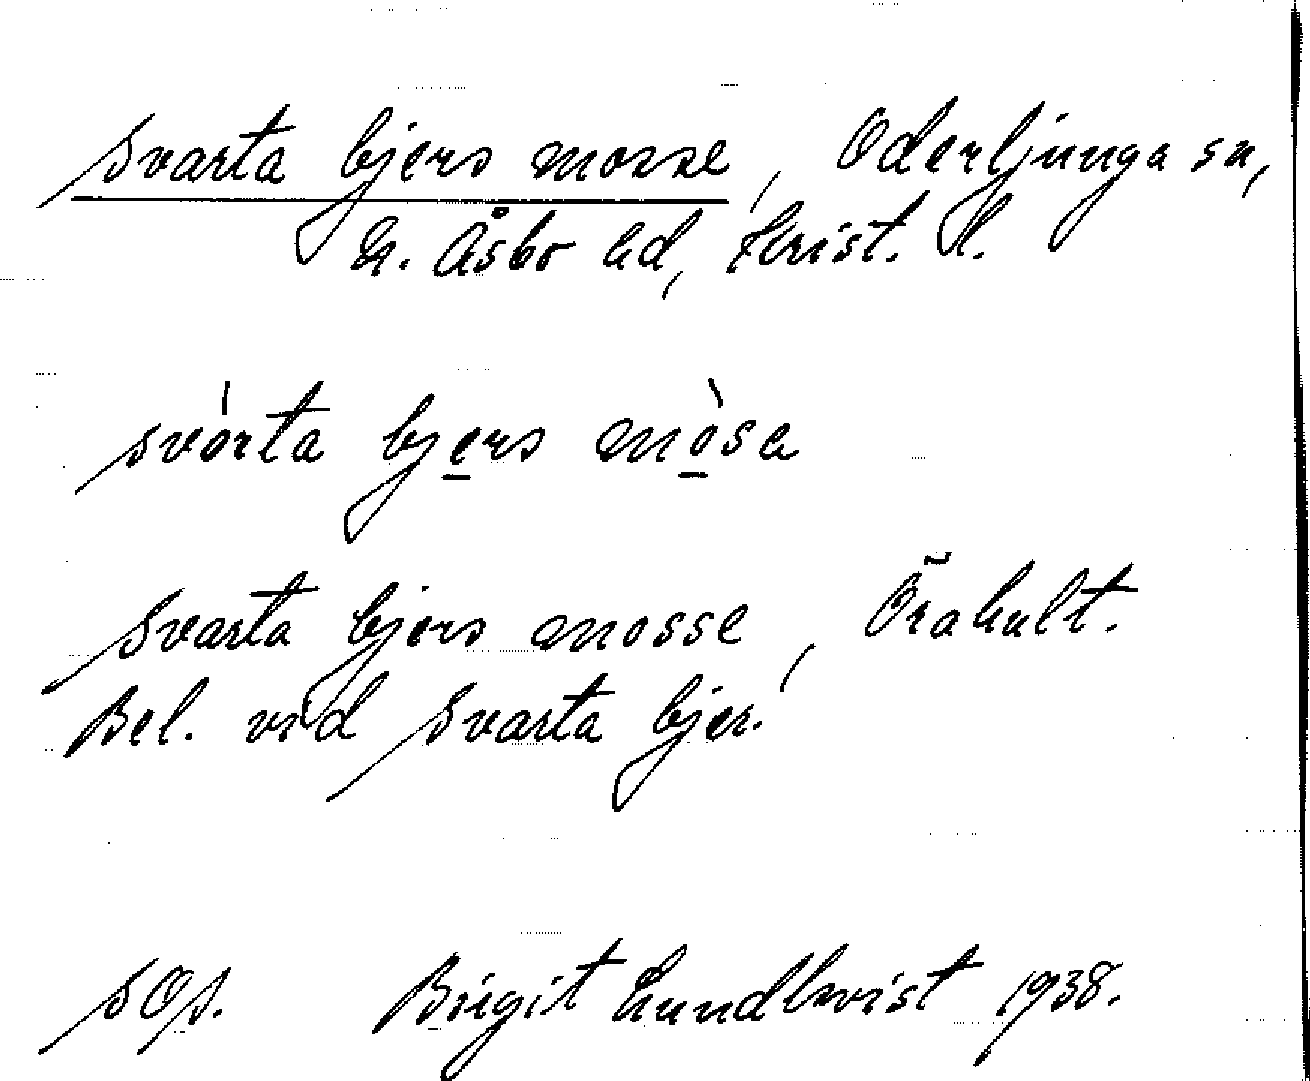 Svarta bjers mosse, Oderljunga sn,
N. Åsbo hd, Krist. l.
svàrta bjers mòsa
Svarta bjers mosse, Örahult.
Bel. vid Svarta bjer.
SOp. Birgit Lundkvist 1938.